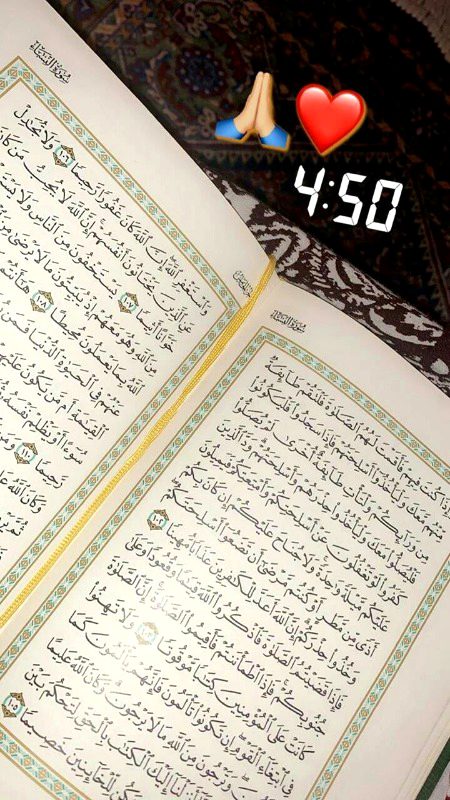 سُورَةُ النِّسَاءِ
وَإِذَا كُنتَ فِيهِمْ فَأَقَمْتَ لَهُمُ ٱلصَّلَوٰةَ فَلْتَقُمْ طَآئِفَةٌ
مِّنْهُم مَّعَكَ وَلْيَأْخُذُوٓا۟ أَسْلِحَتَهُمْ فَإِذَا سَجَدُوا۟ فَلْيَكُونُوا۟
مِن وَرَآئِكُمْ وَلْتَأْتِ طَآئِفَةٌ أُخْرَىٰ لَمْ يُصَلُّوا۟
فَلْيُصَلُّوا۟ مَعَكَ وَلْيَأْخُذُوا۟ حِذْرَهُمْ وَأَسْلِحَتَهُمْ وَدَّ ٱلَّذِينَ
كَفَرُوا۟ لَوْ تَغْفُلُونَ عَنْ أَسْلِحَتِكُمْ وَأَمْتِعَتِكُمْ فَيَمِيلُونَ
عَلَيْكُم مَّيْلَةً وَٰحِدَةً وَلَا جُنَاحَ عَلَيْكُمْ إِن كَانَ بِكُمْ
أَذًى مِّن مَّطَرٍ أَوْ كُنتُم مَّرْضَىٰٓ أَن تَضَعُوٓا۟ أَسْلِحَتَكُمْ
وَخُذُوا۟ حِذْرَكُمْ إِنَّ ٱللَّهَ أَعَدَّ لِلْكَٰفِرِينَ عَذَابًا مُّهِينًا ١٠٢
فَإِذَا قَضَيْتُمُ ٱلصَّلَوٰةَ فَٱذْكُرُوا۟ ٱللَّهَ قِيَٰمًا وَقُعُودًا وَعَلَىٰ
جُنُوبِكُمْ فَإِذَا ٱطْمَأْنَنتُمْ فَأَقِيمُوا۟ ٱلصَّلَوٰةَ إِنَّ ٱلصَّلَوٰةَ
كَانَتْ عَلَى ٱلْمُؤْمِنِينَ كِتَٰبًا مَّوْقُوتًا ١٠٣ وَلَا تَهِنُوا۟
فِى ٱبْتِغَآءِ ٱلْقَوْمِ إِن تَكُونُوا۟ تَأْلَمُونَ فَإِنَّهُمْ يَأْلَمُونَ كَمَا
وَتَرْجُونَ مِنَ ٱللَّهِ مَا لَا يَرْجُونَ وَكَانَ ٱللَّهُ عَلِيمًا
إِلَيْكَ ٱلْكِتَٰبَ بِٱلْحَقِّ لِتَحْكُمَ بَيْنَ
لِّلْخَآئِنِينَ خَصِيمًا ١٠٥
سُورَةُ النِّسَاءِ
وَٱسْتَغْفِرِ ٱللَّهَ إِنَّ ٱللَّهَ كَانَ غَفُورًا رَّحِيمًا ١٠٦ وَلَا تُجَٰدِلْ
عَنِ ٱلَّذِينَ يَخْتَانُونَ أَنفُسَهُمْ إِنَّ ٱللَّهَ لَا يُحِبُّ مَن كَانَ
خَوَّانًا أَثِيمًا ١٠٧ يَسْتَخْفُونَ مِنَ ٱلنَّاسِ وَلَا
مِنَ ٱللَّهِ وَهُوَ مَعَهُمْ إِذْ يُبَيِّتُونَ مَا لَا يَرْضَىٰ مِنَ
ٱللَّهُ بِمَا يَعْمَلُونَ مُحِيطًا ١٠٨ هَٰٓأَنتُمْ
عَنْهُمْ فِى ٱلْحَيَوٰةِ ٱلدُّنْيَا فَمَن
ٱلْقِيَٰمَةِ أَم مَّن يَكُونُ عَلَيْهِمْ
سُوٓءًا أَوْ يَظْلِمْ نَفْسَهُۥ
رَّحِيمًا ١١٠ وَمَن
وَكَانَ ٱللَّهُ
4:50